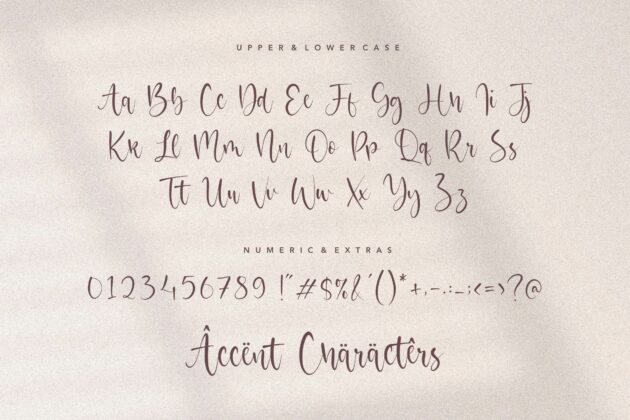 UPPER & LOWER CASE
Aa Bb Cc Dd Ee Ff Gg Hh Ii Jj
Kk Ll Mm Nn Oo Pp Qq Rr Ss
Tt Uu Vv Ww Xx Yy Zz
NUMERIC & EXTRAS
0123456789 !"#$%&'()*+,-.:_;<=>?@
Âccënt Chäräctêrs